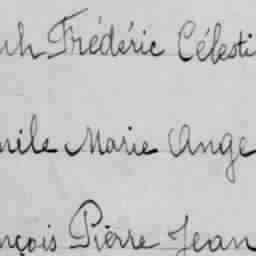 uh Frédéric Célesti
mile Marie Ange
nçois Pierre Jean